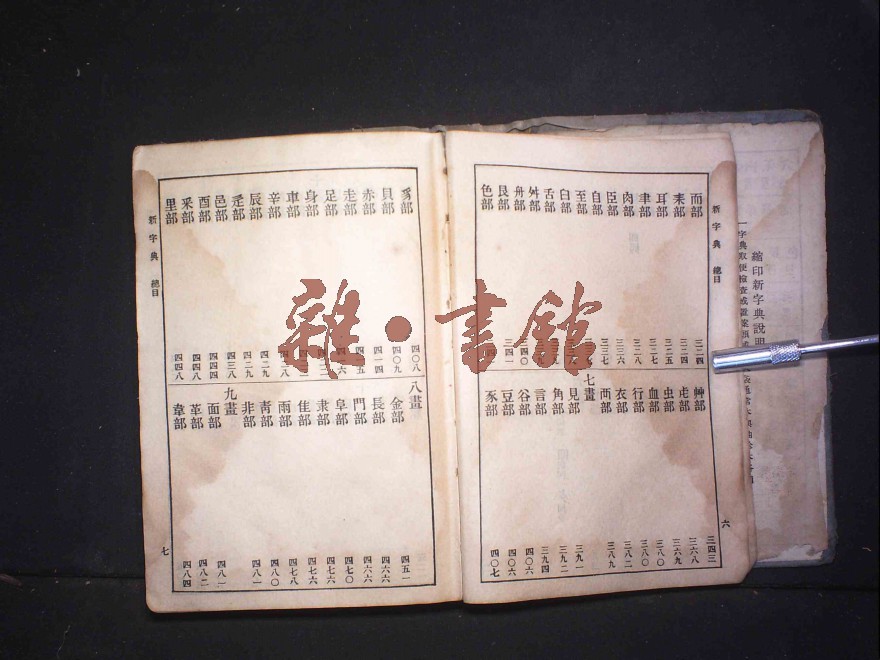 縮印新字典說明
一字典取便檢查
新字典 總目
六
而部 三二四
耒部 三二四
耳部 三二五
聿部 三二七
肉部 三二八
臣部 三三六
自部 三三七
至部
臼部
舌部
舛部
舟部
艮部 三四一
色部
艸部 三四三
虍部 三六八
虫部 三六九
血部 三八〇
行部 三八〇
衣部 三八二
襾部 三八九
七畫
見部 三九一
角部 三九二
言部 三九四
谷部 四〇六
豆部 四〇六
豕部 四〇七
豸部 四〇八
貝部 四〇九
赤部 四一四
走部
足部
身部
車部
辛部
辰部 四二九
辵部 四二九
邑部 四三八
酉部 四四四
釆部 四四八
里部 四四八
八畫
金部 四五一
長部 四六六
門部 四六六
阜部 四七〇
隶部 四七六
隹部 四七六
雨部 四七八
靑部 四八〇
非部 四八一
九畫
面部 四八一
革部 四八二
韋部 四八四
新字典 總目
七
雜·書館